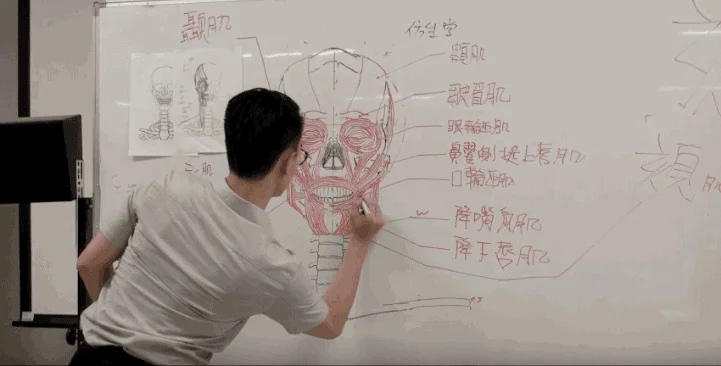 顳肌
仿生学
額肌
皺眉肌
眼輪匝肌
鼻翼側提上唇肌
口輪匝肌
降嘴角肌
降下唇肌
頦